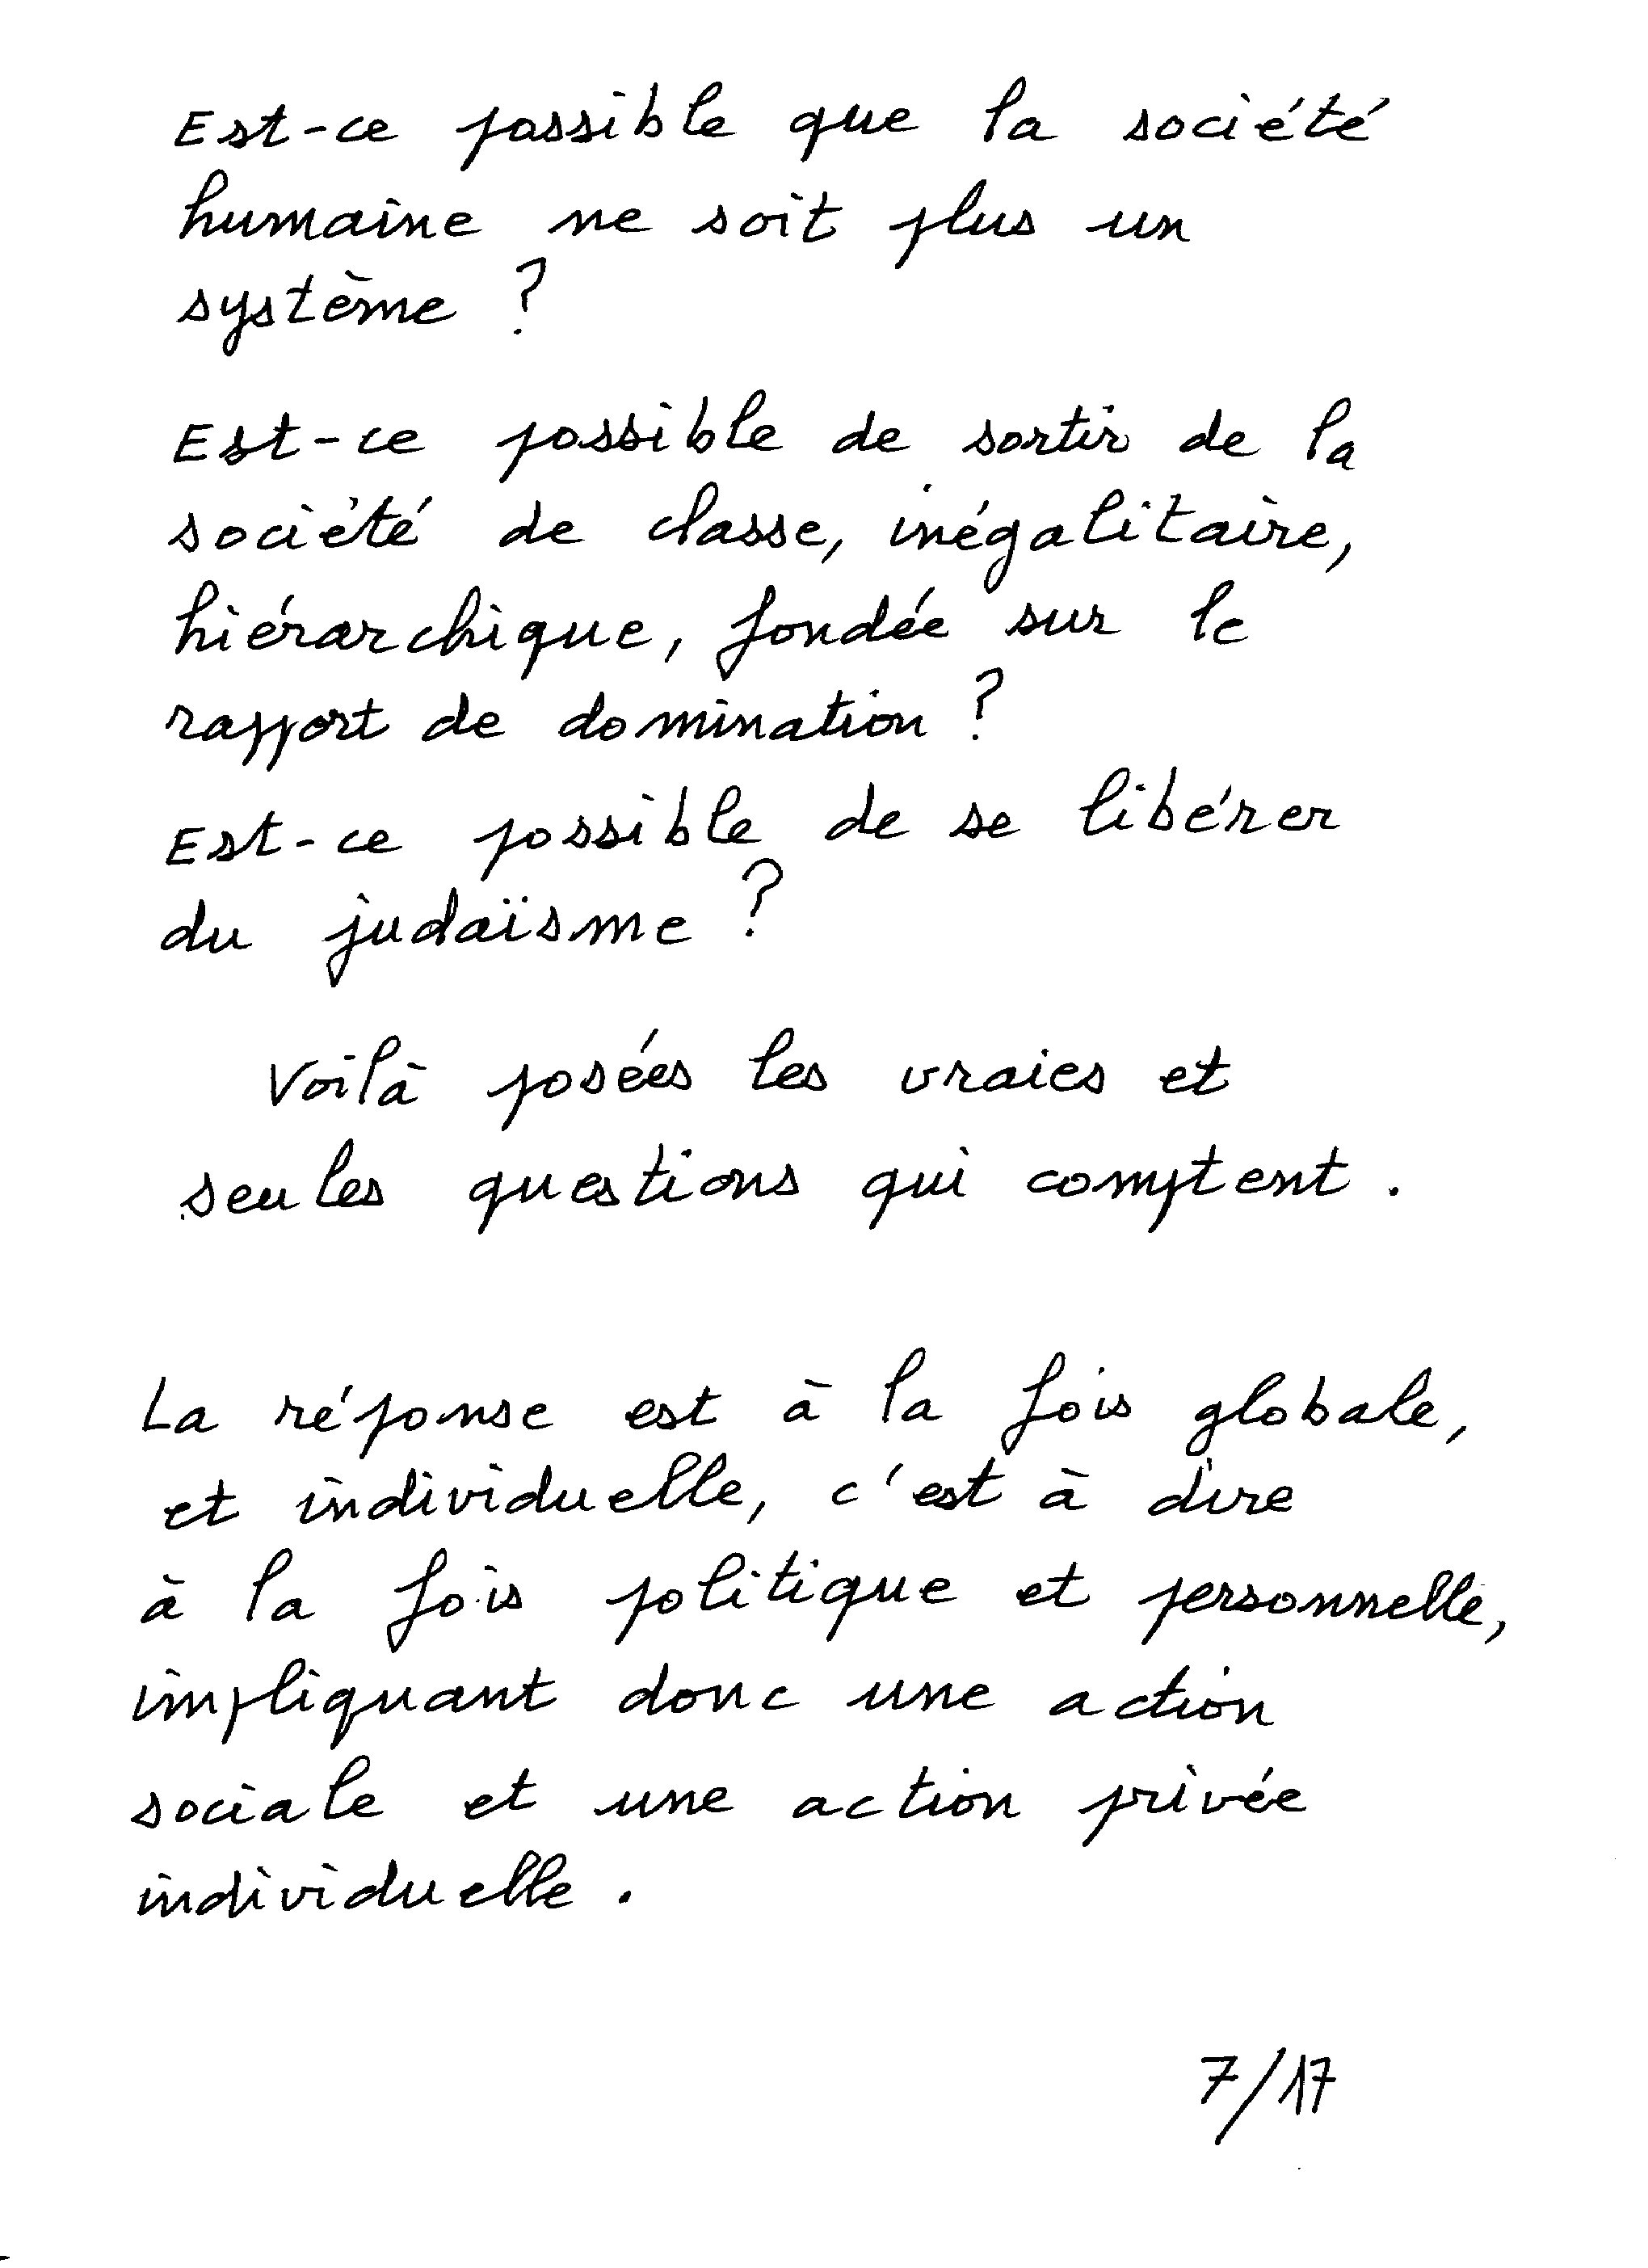 Est-ce possible que la société
humaine ne soit plus un
système ?
Est-ce possible de sortir de la
société de classe, inégalitaire,
hiérarchique, fondée sur le
rapport de domination ?
Est-ce possible de se libérer
du judaïsme ?
Voilà posées les vraies et
seules questions qui comptent.
La réponse est à la fois globale,
et individuelle, c'est à dire
à la fois politique et personnelle,
impliquant donc une action
sociale et une action privée
individuelle.
7/17